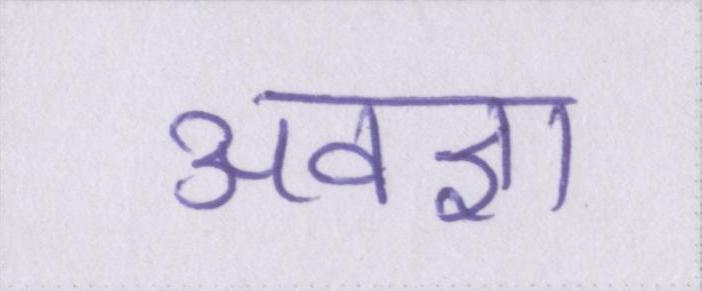 अवज्ञा